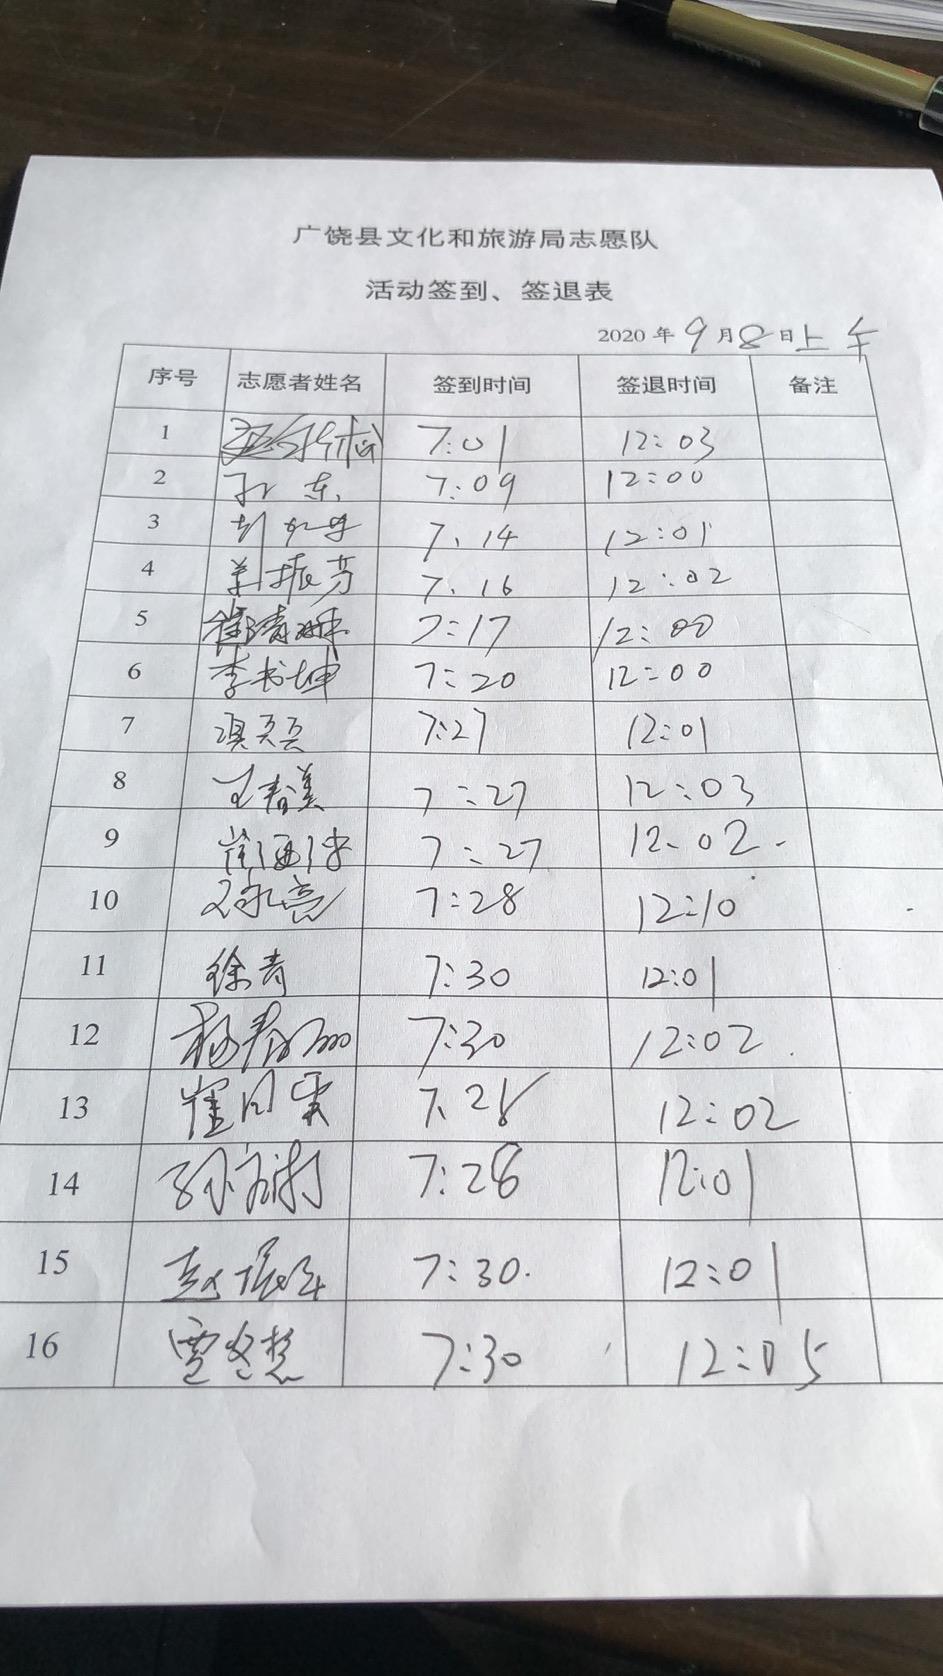 广饶县文化和旅游局志愿队
活动签到、签退表
2020 年 9 月 8 日上午
序号 志愿者姓名 签到时间 签退时间 备注
1 7:01 12:03
2 东 7:09 12:00
3 7:14 12:01
4 振芳 7:16 12:02
5 崔清 7:17 12:00
6 李书坤 7:20 12:00
7 7:27 12:01
8 王春美 7:27 12:03
9 崔 7:27 12:02
10 亮 7:28 12:10
11 徐青 7:30 12:01
12 杨春 7:30 12:02
13 崔 7:28 12:02
14 孙 7:28 12:01
15 赵振 7:30 12:01
16 7:30 12:05